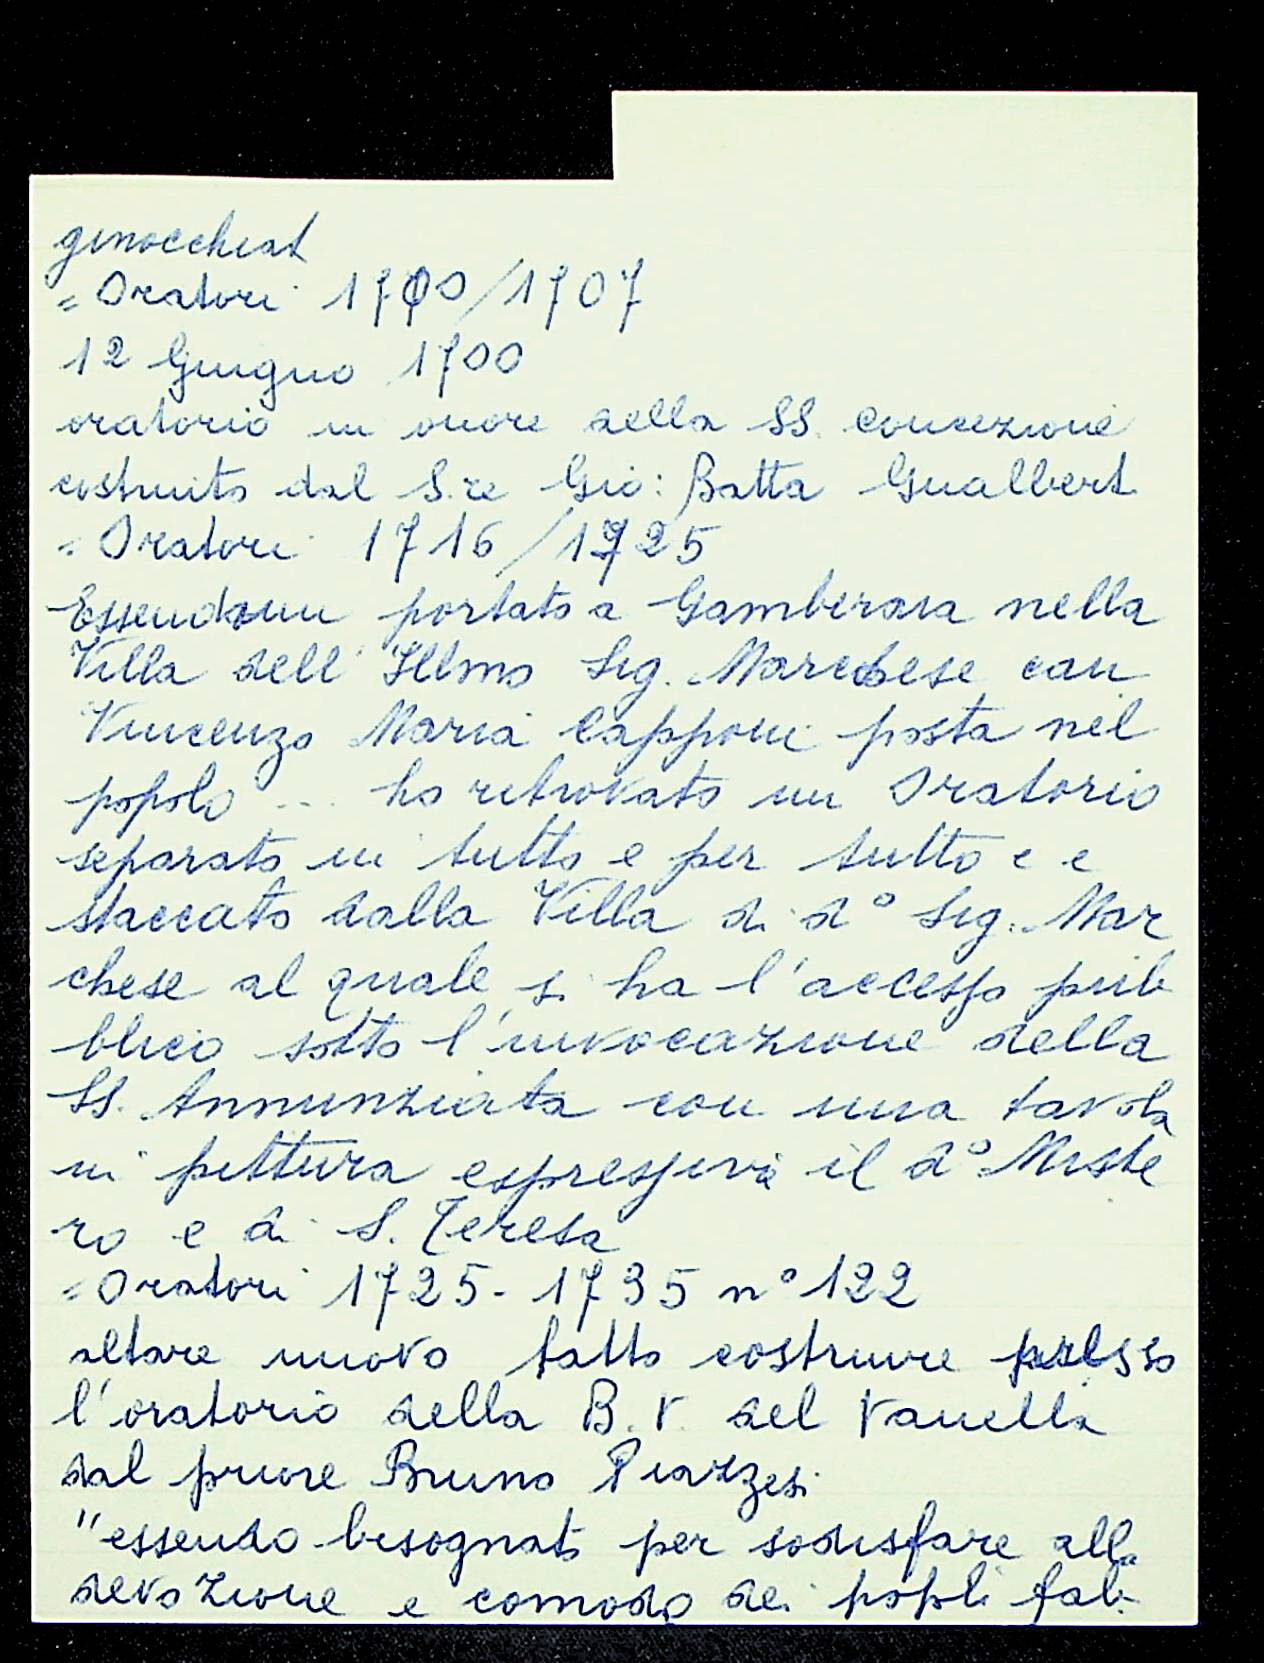 ginocchiat
= Oratori 1700/1707
12 Giugno 1700
oratorio in onore della SS. Concezione
costruito dal S.re Gio: Batta Gualbert
= Oratori 1716/1725
Essendomi portato a Gamberaia nella
Villa dell' Illmo Sig. Marchese can
Vincenzo Maria Capponi posta nel
popolo ... ho ritrovato un Oratorio
separato in tutto e per tutto e e
staccato dalla Villa di d° Sig. Mar
chese al quale si ha l'accesso pub
blico sotto l'invocazione della
SS. Annunziata con una tavola
in pittura espressivi il d° Miste
ro e di S. Teresa
= Oratori 1725-1735 n° 122
altare nuovo fatto costruire presso
l'oratorio della B.V. del Vanella
dal priore Bruno Piazzesi
"essendo bisognato per sodisfare alla
devozione e comodo dei popoli fab-